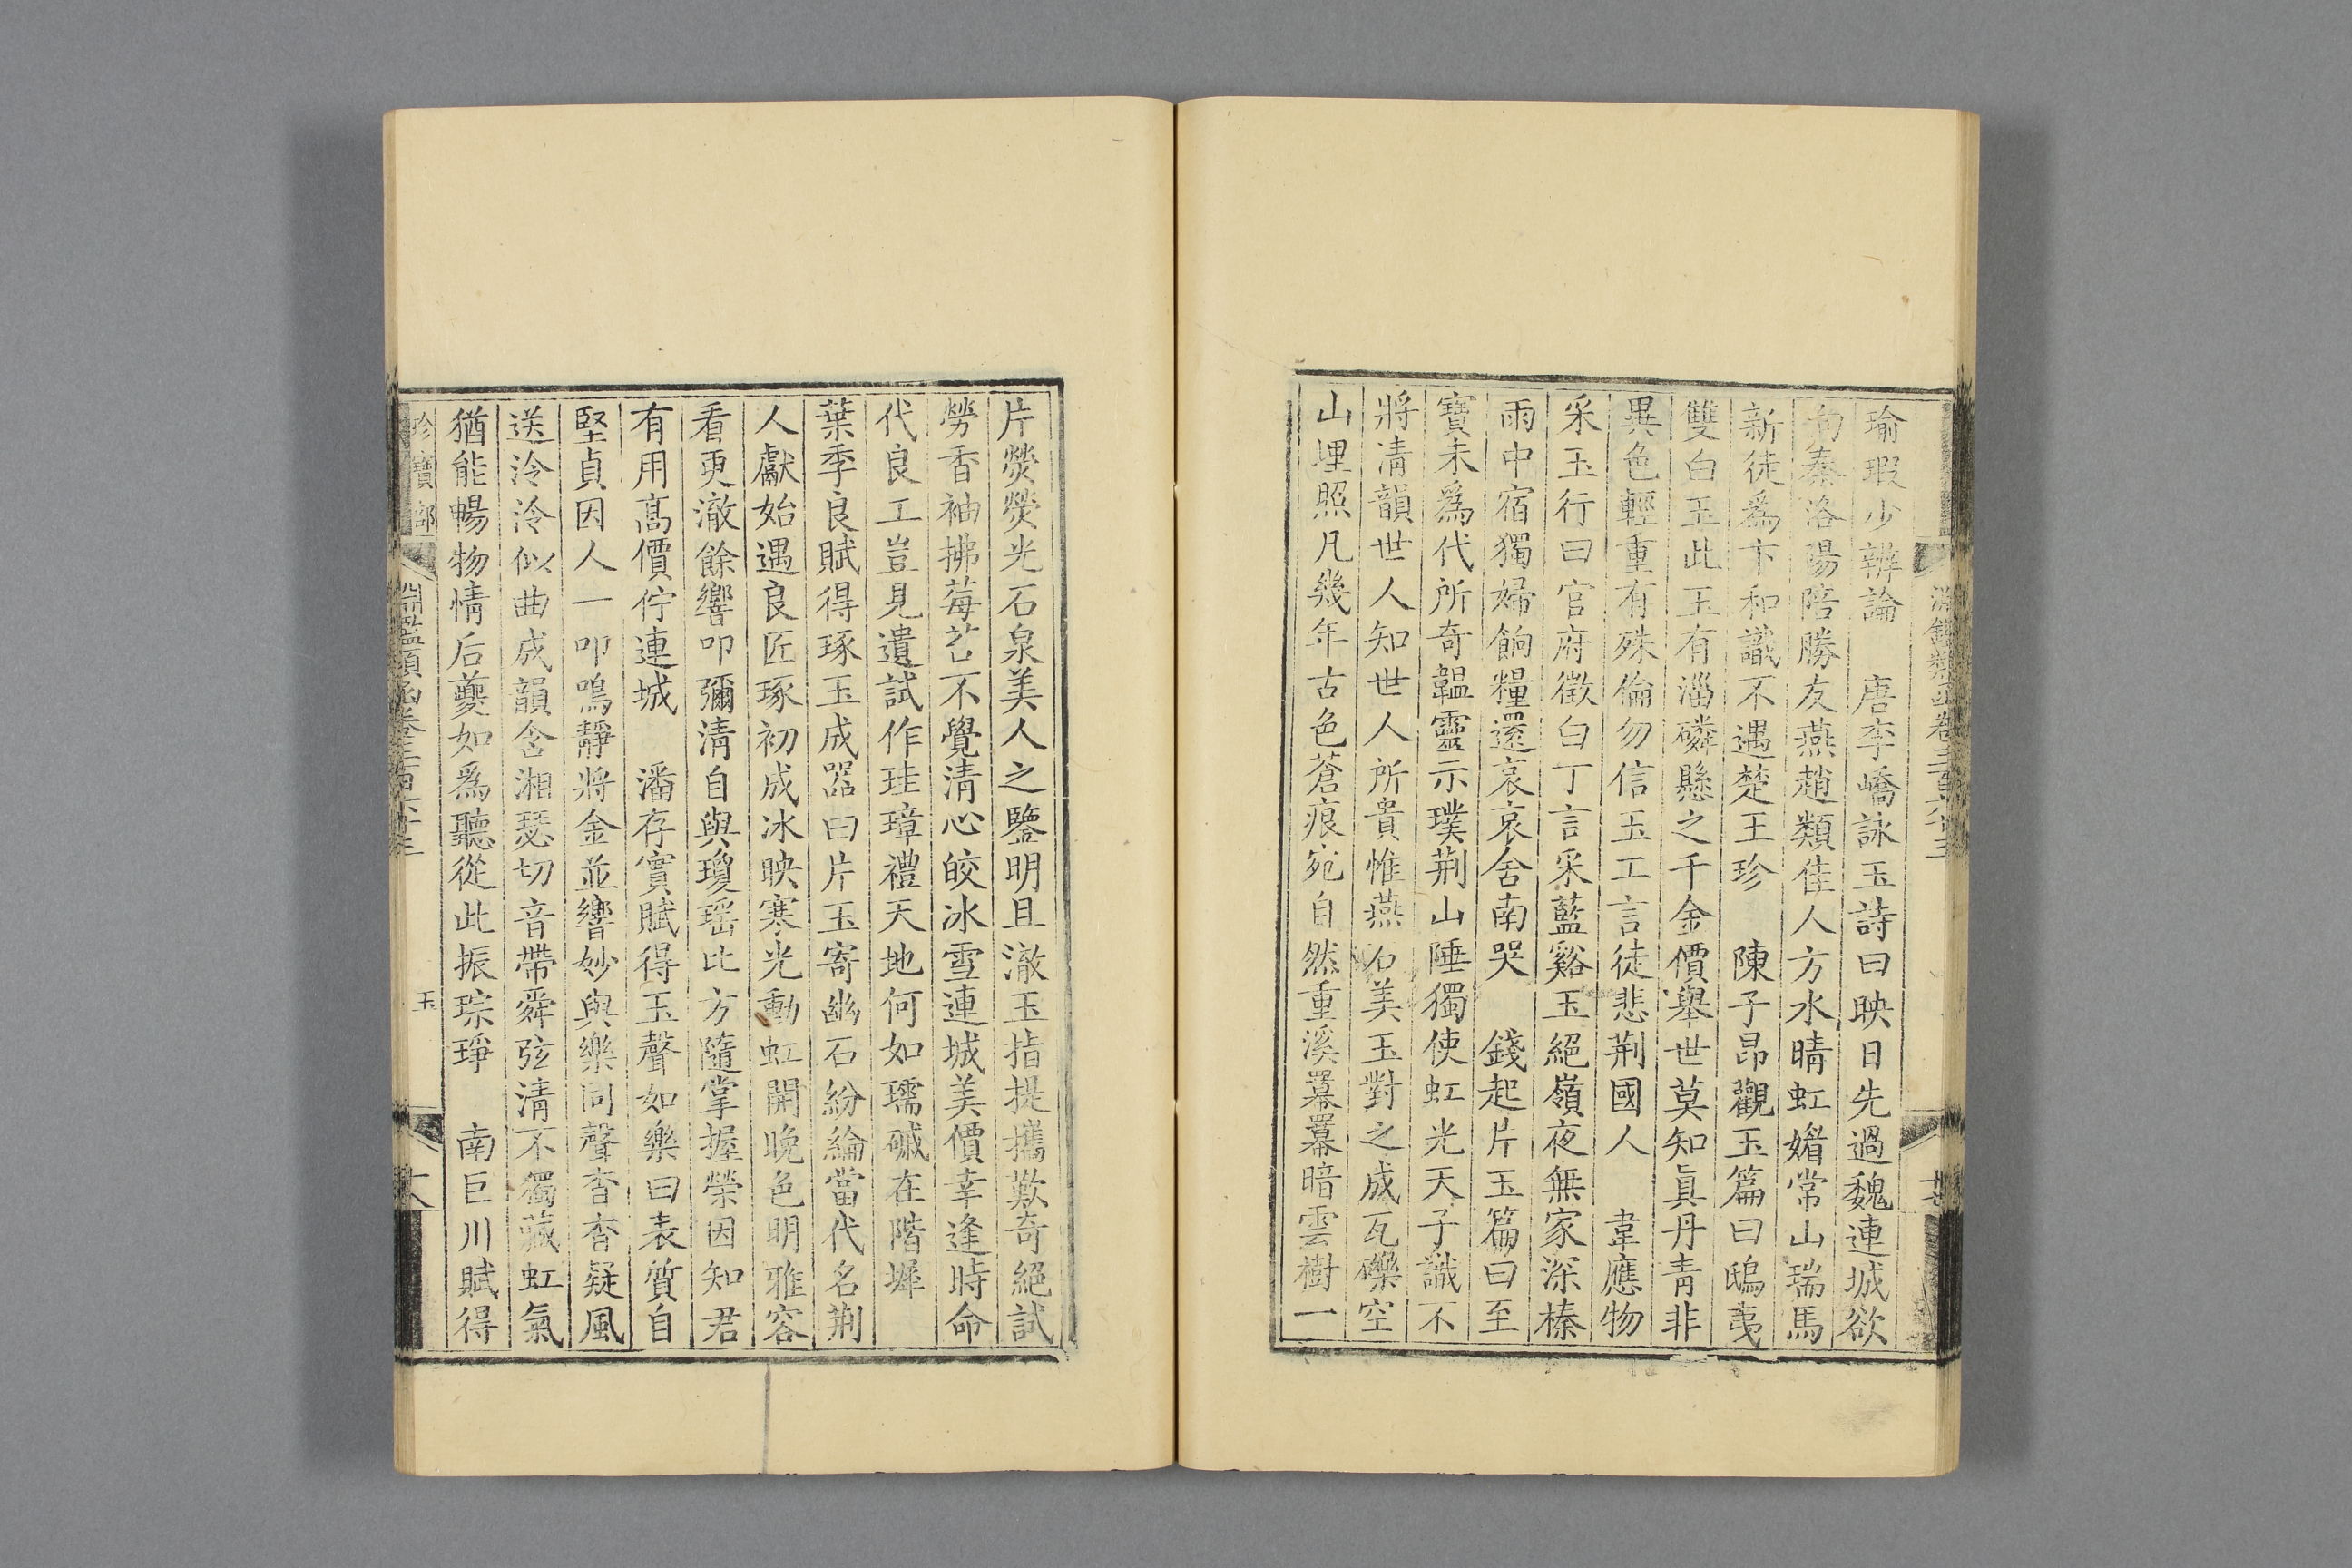 瑜瑕少辨論　唐李嶠詠玉詩曰映日先過魏連城欲
向秦洛陽陪勝友燕趙類佳人方水晴虹媚常山瑞馬
新徒爲卞和識不遇楚王珍　陳子昂觀玉篇曰鴟夷
雙白玉此玉有淄磷懸之千金價舉世莫知眞丹青非
異色輕重有殊倫勿信玉工言徒悲荆國人　韋應物
采玉行曰官府徵白丁言采藍谿玉絕嶺夜無家深榛
雨中宿獨婦餉糧還哀哀舍南哭　錢起片玉篇曰至
寶未爲代所奇韞靈示璞荆山陲獨使虹光天子識不
將清韻世人知世人所貴惟燕石美玉對之成瓦礫空
山埋照凡幾年古色蒼痕宛自然重溪羃羃暗雲樹一
片熒熒光石泉美人之鑒明且澈玉指提攜歎奇絕試
勞香袖拂莓苔不覺清心皎冰雪連城美價幸逢時命
代良工豈見遺試作珪璋禮天地何如瓀磩在階墀
葉季良賦得琢玉成器曰片玉寄幽石紛綸當代名荆
人獻始遇良匠琢初成冰映寒光動虹開晚色明雅容
看更澈餘響叩彌清自與瓊瑤比方隨掌握榮因知君
有用高價佇連城　潘存實賦得玉聲如樂曰表質自
堅貞因人一叩鳴靜將金並響妙與樂同聲杳杳疑風
送泠泠似曲成韻含湘瑟切音帶舜弦清不獨藏虹氣
猶能暢物情后夔如爲聽從此振琮琤　南巨川賦得
珍寶部
淵鑑類函卷三百六十三
玉